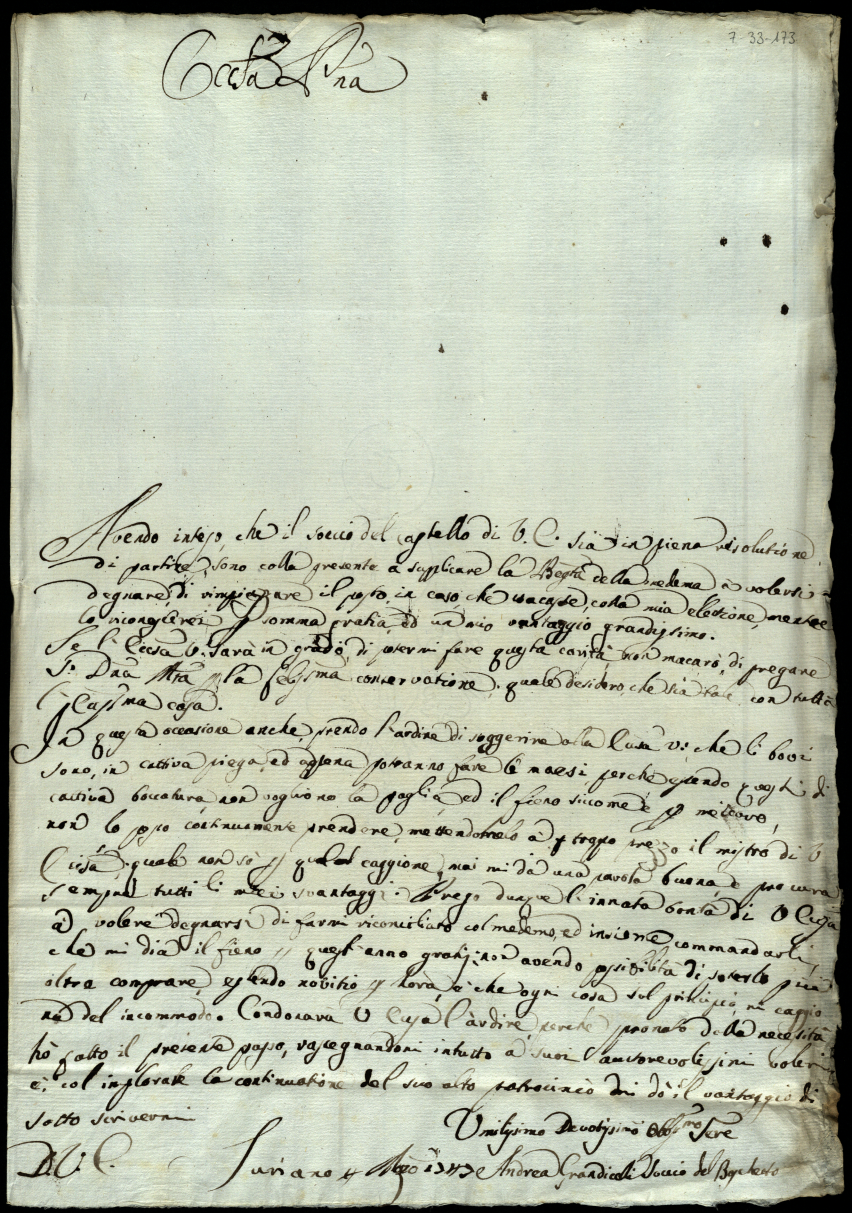 7-33-173
Eccsa Pna
Avendo inteso, che il soccio del Castello di V. E. sia in piena risolutione
di partire, sono colla presente a supplicare la della medema a volersi
degnare, di rimpiazzare il posto, in caso, che vacasse, colla mia elezione, mentre
lo riconoscerei p somma gratia, ed un mio vantaggio grandissimo.
Se l'Eccsa V. sarà in grado, di potermi fare questa carità, non mancarò, di pregare
S. Dna Mia p la conservatione, quale desidero, che sia tale con tutta
l' casa.
In questa occasione anche, prendo l'ardire di soggerire alla V: che li bovi
sono, in cattiva piega, ed appena potranno fare le maesi perche essendo questi di
cattiva boccatura, non vogliono la paglia, ed il fieno siccome è p
non lo posso continuamente prendere, mettendomelo à troppo prezzo il mistro di V
Eccsa, quale non sò p qual caggione, mai mi dà una parola buona, e procura
sempre tutti li miei svantaggi. Prego dunque l'innata bontà di V Eccsa
à volere degnarsi di farmi riconciliare col medemo, ed insieme, commandarli,
che mi dia il fieno p quest'anno gratis, non avendo possibiltà di poterlo più in
oltre comprare, essendo novitio p hora, e che ogni cosa sul principio, mi caggio
na del incommodo. Condonarà V Eccsa l'ardire, perche pronato della necessità
hò fatto il presente passo, rassegnandomi in tutto a' suoi autorevolissimi voleri
e col implorare la continuatione del suo alto patrocinio mi dò il vantaggio di
sotto scrivermi
Umilissimo Devotissimo Obbmo Sere
D. V. E. Suriano 4 1747 Andrea Grandicelli Soccio del Borghetto